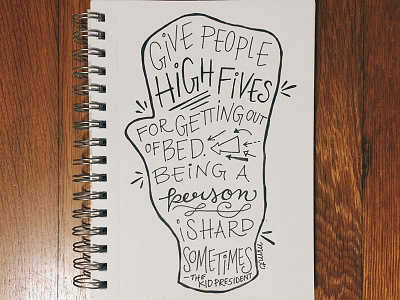 GIVE PEOPLE
HIGH FIVES
FOR GETTING OUT
OF BED.
BEING A
person
iS HARD
SOMETIMES
—THE
KID PRESIDENT